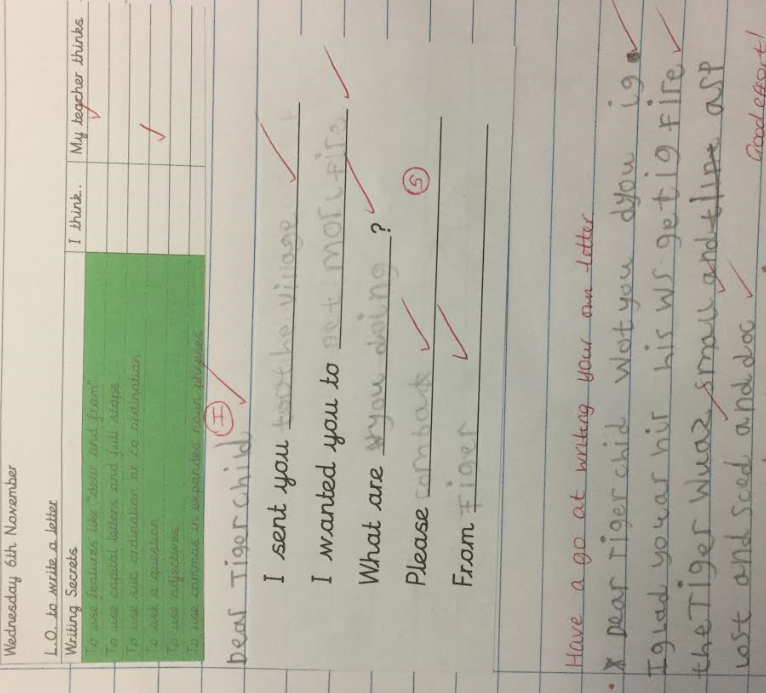 Wednesday 6th November
L.O. to write a letter
Writing Secrets I think.. My teacher thinks
To use features like "dear and from"
To use capital letters and full stops
To use sub ordination or co ordination
To ask a question
To use adjectives
To use commas in expanded noun phrases
I
Dear Tiger chid
I sent you toothe village
I wanted you to get mori fire
What are you doing ?
Please combak S
From Tiger
Have a go at writing your own letter
Dear Tiger chid Wot you dyou ig
I glad you ar hir his WS get ig Fire
the Tiger Wuaz small and asp
lost and Sced and doc
Good effort!